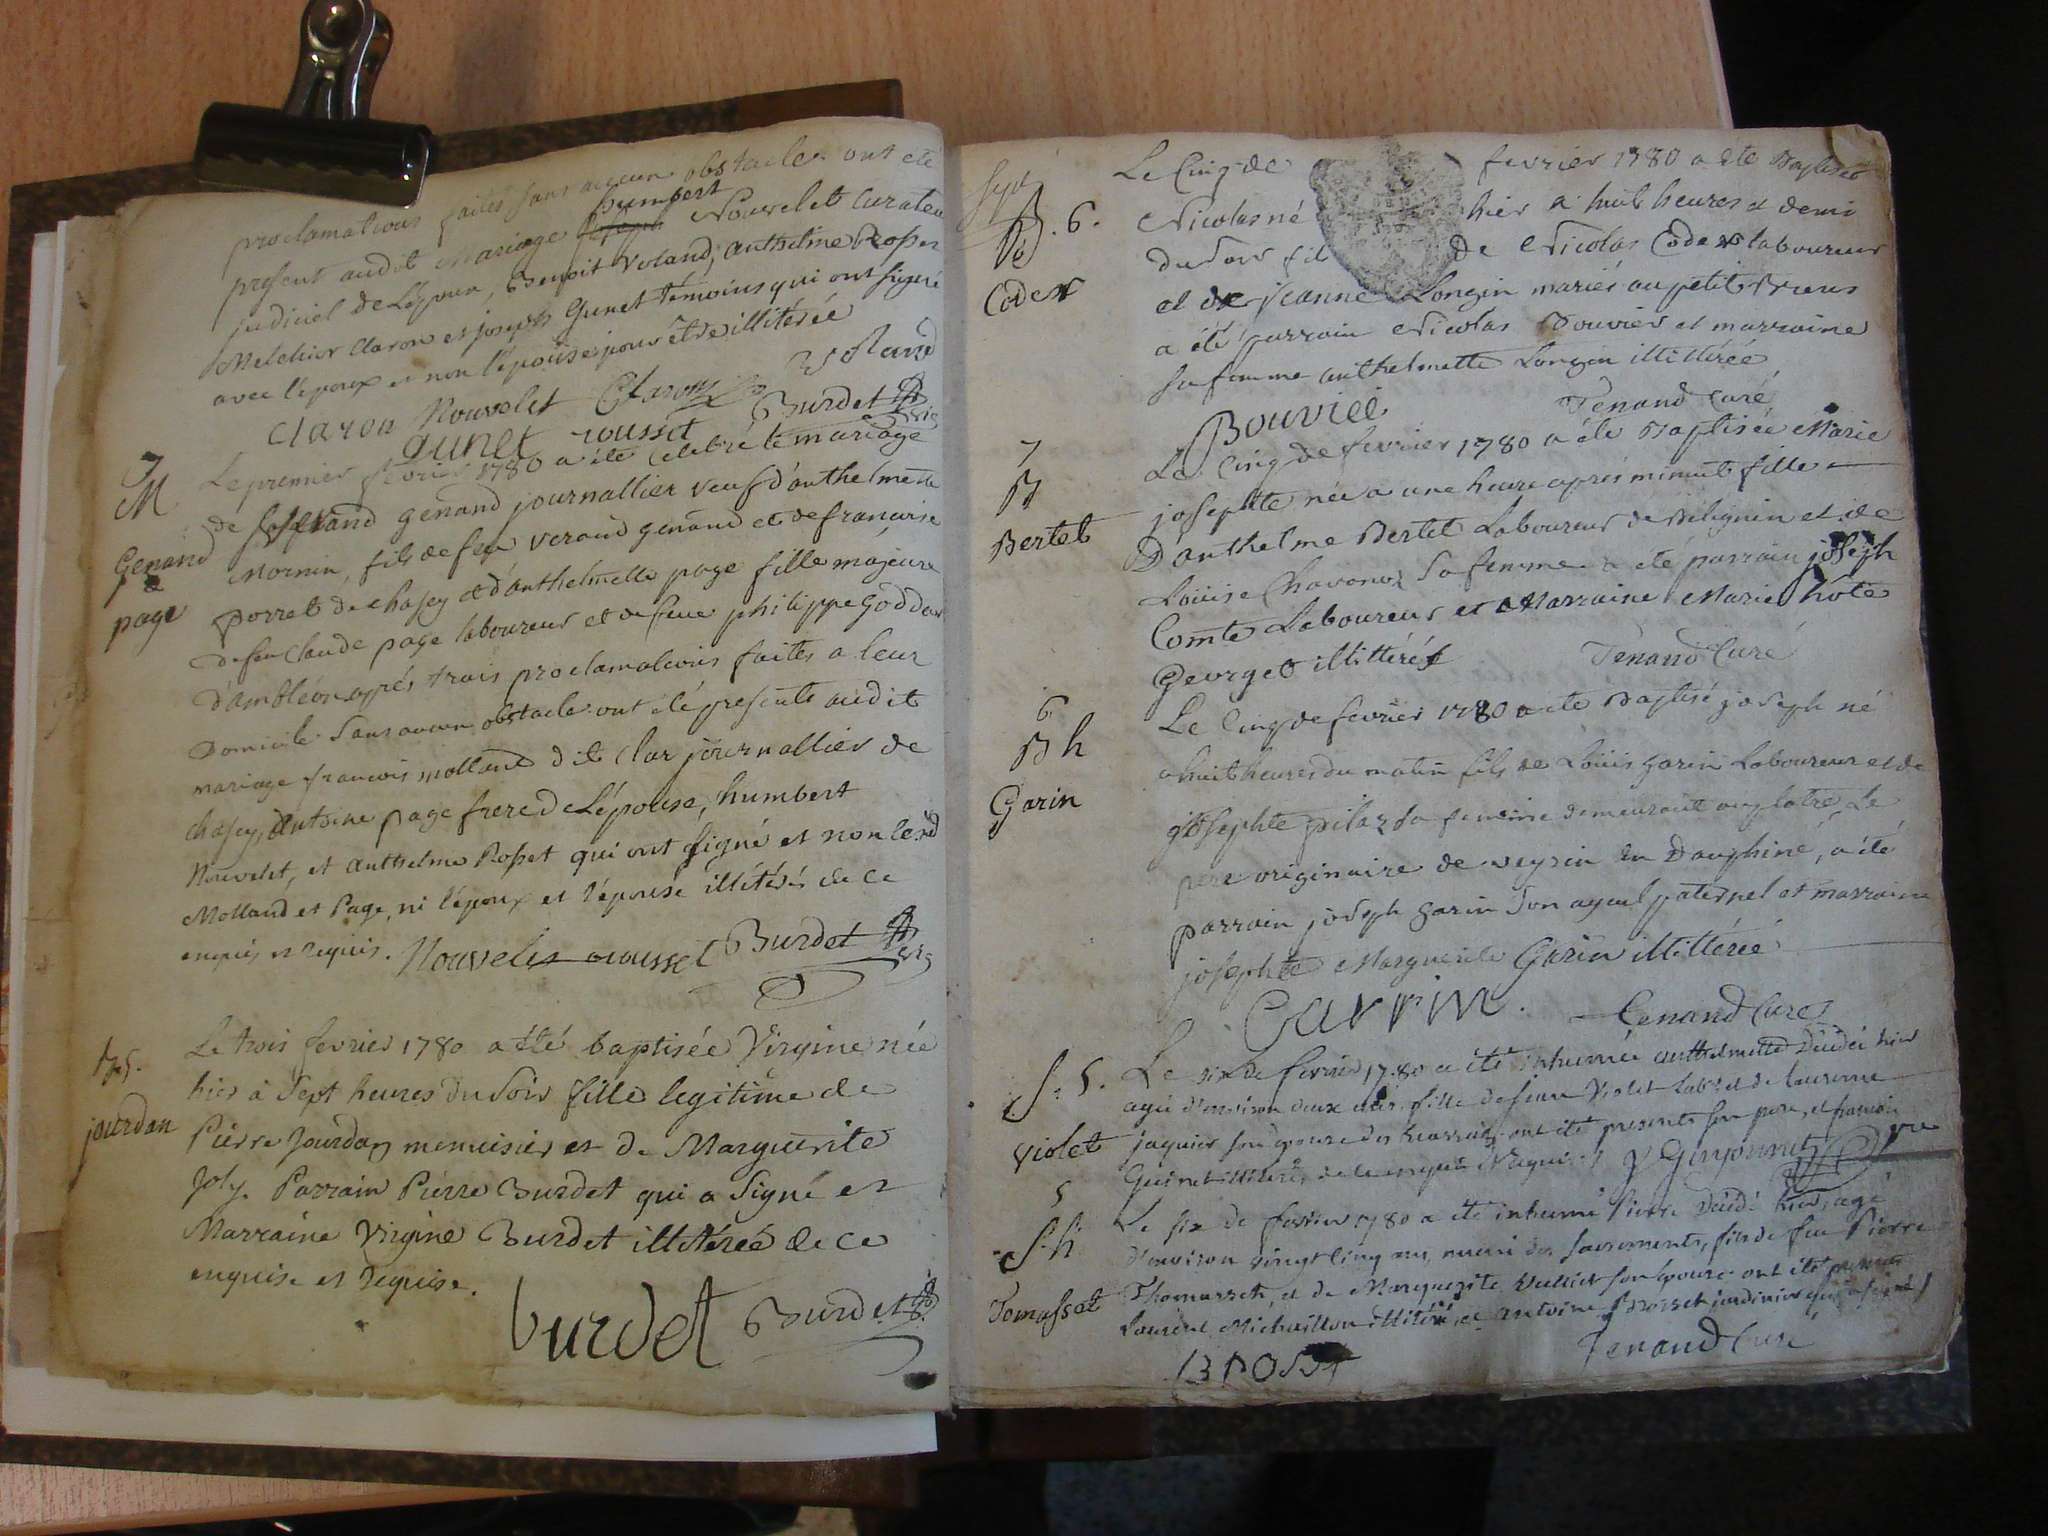 proclamations faites sans aucun obstacle ont été
humbert
present audit Mariage joseph Nouvelet curateur
judiciel de L'épouse, Benoit Voland, anthelme Rosset
Melchior Claron et joseph Gunet témoins qui ont signé
avec l'epoux et non l'épouse pour être illitérée
Voland
Claron Nouvelet Claron Burdet
Gunet rousset
7
M
Genand
&
page
Le premier fevrier 1780 a été celebré le mariage
de genand journallier veuf d'anthelmette
Mornin, fils de feu verand genand et de francoise
porret de chasey et d'anthelmette page fille majeure
de feu claude page laboureur et de feue philippe goddar
d'ambléon, après trois proclamations faites a leur
Domicile sans aucun obstacle ont été presents audit
mariage francois molland dit clar journallier de
chasey, antoine page frere de L'épouse, humbert
Nouvelet, et anthelme Rosset qui ont signé et non led
Molland et Page, ni l'époux et l'épouse illitérés de ce
enquis et requis. Nouvelet rousset Burdet
B 5.
jourdan
Le trois fevrier 1780 a été baptisée Virgine née
hier à sept heures du soir fille legitime de
Pierre Jourdan menuisier et de Marguerite
Joly. Parrain Pierre Burdet qui a signé et
Marraine Virgine Burdet illitérée de ce
enquise et requise.
burdet Burdet
sept
B. 6.
Coder
Le Cinq de fevrier 1780 a été Baptisé
Nicolas né hier a huit heures et demi
du soir fil de Nicolas Coder laboureur
et de jeanne Longin mariés au petit Brens
a été parrain Nicolas Bouvier et marraine
sa femme anthelmette Longin illittérée
Bouvier Tenand Curé
7
B
Bertet
Le Cinq de fevrier 1780 a été Baptisée Marie
josephte née a une heure après minuit fille
D'anthelme Bertet Laboureur de Bilignin et de
Louise Chavanas sa femme a été parrain joseph
Comte Laboureur et Marraine Marie hote
George illittérés Tenand Curé
6
B h
Garin
Le Cinq de fevrier 1780 a été Baptisé joseph né
a huit heures du matin fils de Louis garin Laboureur et de
josephte pilaz sa femme demeurant Le
pere originaire de veyrin en Dauphiné, a été
parrain joseph garin son ayeul paternel et marraine
josephte Marguerite Garin illittérée
Garrin. Tenand Curé
S. 5.
violet
Le six de fevrier 1780 a été inhumée anthelmette décédée hier
agée d'environ deux fille de jean Violet Labr et de laurence
jaquier son epouse des ont été presents son pere, et francois
Guinet illitérés de ce enquis et requis Guyonnet
5
S. h
Tomasset
Le six de fevrier 1780 a été inhumé Pierre Décédé hier, agé
d'environ vingt cinq ans, muni des sacrements, fils de feu Pierre
Thomasset, et de Marguerite Vulliet son epouse ont été presents
Laurent Michaillon illitéré, et antoine Brosset jardinier qui a signé
Brosset Tenand Curé